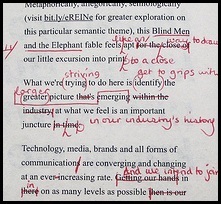 Metaphorically, allegorically, semiologically
(visit bit.ly/eREINe for greater exploration of
this particular semantic theme), this Blind Men
like an way to draw
and the Elephant fable feels apt for the/close of
our little excursion into print to a close
striving get to grips with
What we're trying to do here is identify the
larger
greater picture that's emerging within the
industry at what we feel is an important
juncture in time in our industry's history
Technology, media, brands and all forms of
communication are converging and changing
And we intend to join
at an ever-increasing rate. Getting our hands in
in
there on as many levels as possible then is our